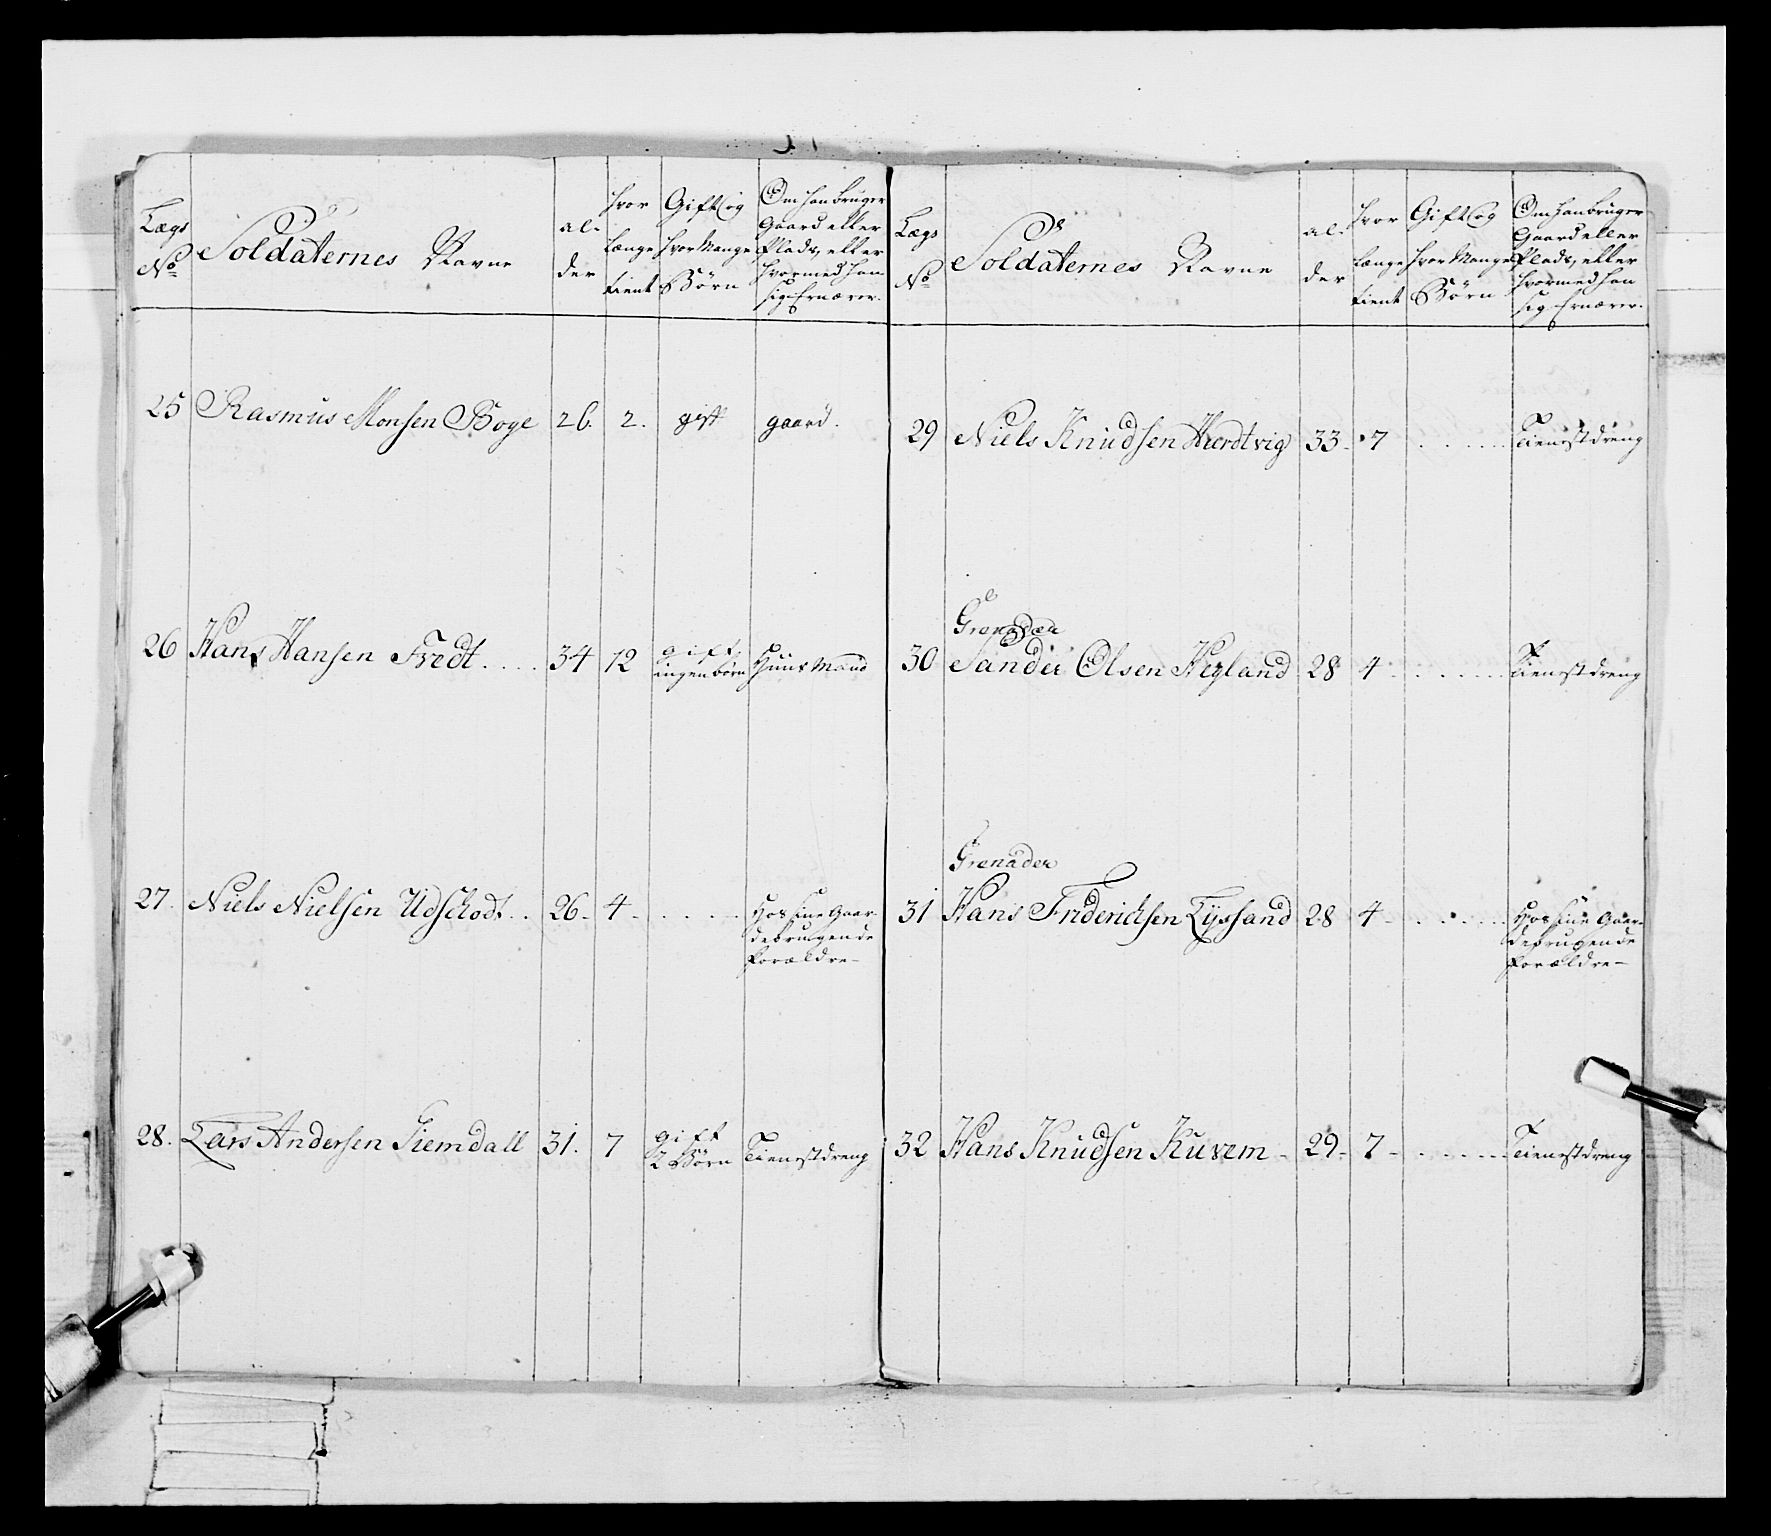 Lægs No Soldaternes Navne al- der hvor længe tient Gift og hvor Mange Börn Om han bruger Gaard eller Plads, eller hvormed han sig Ernærer.
25 Rasmus Monsen Boge 26. 2. gift gaard.
26 Hans Hansen Fredt .... 34 12 gift ingen börn Huusmand
27. Niels Nielsen Udschodt .. 26. 4 - ..... Hos sine Gaar- debrugende Forældre -
28. Lars Andersen Tiemdall 31. 7 gift 2 Börn Tienestdreng
Lægs No Soldaternes Navne al- der hvor længe tient Gift og hvor Mange Börn Om han bruger Gaard eller Plads, eller hvormed han sig Ernærer.
29 Niels Knudsen Hordtvig 33. 7 ..... Tienestdreng
Grenader
30 Sander Olsen Hegland 28 4 ...... Tienestdreng
Grenader
31 Hans Friderichsen Lyssand 28 4 - ..... Hos sine Gaar- debrugende Forældre -
32 Hans Knudsen Kuvem - 29. 7 - ...... Tienestdreng